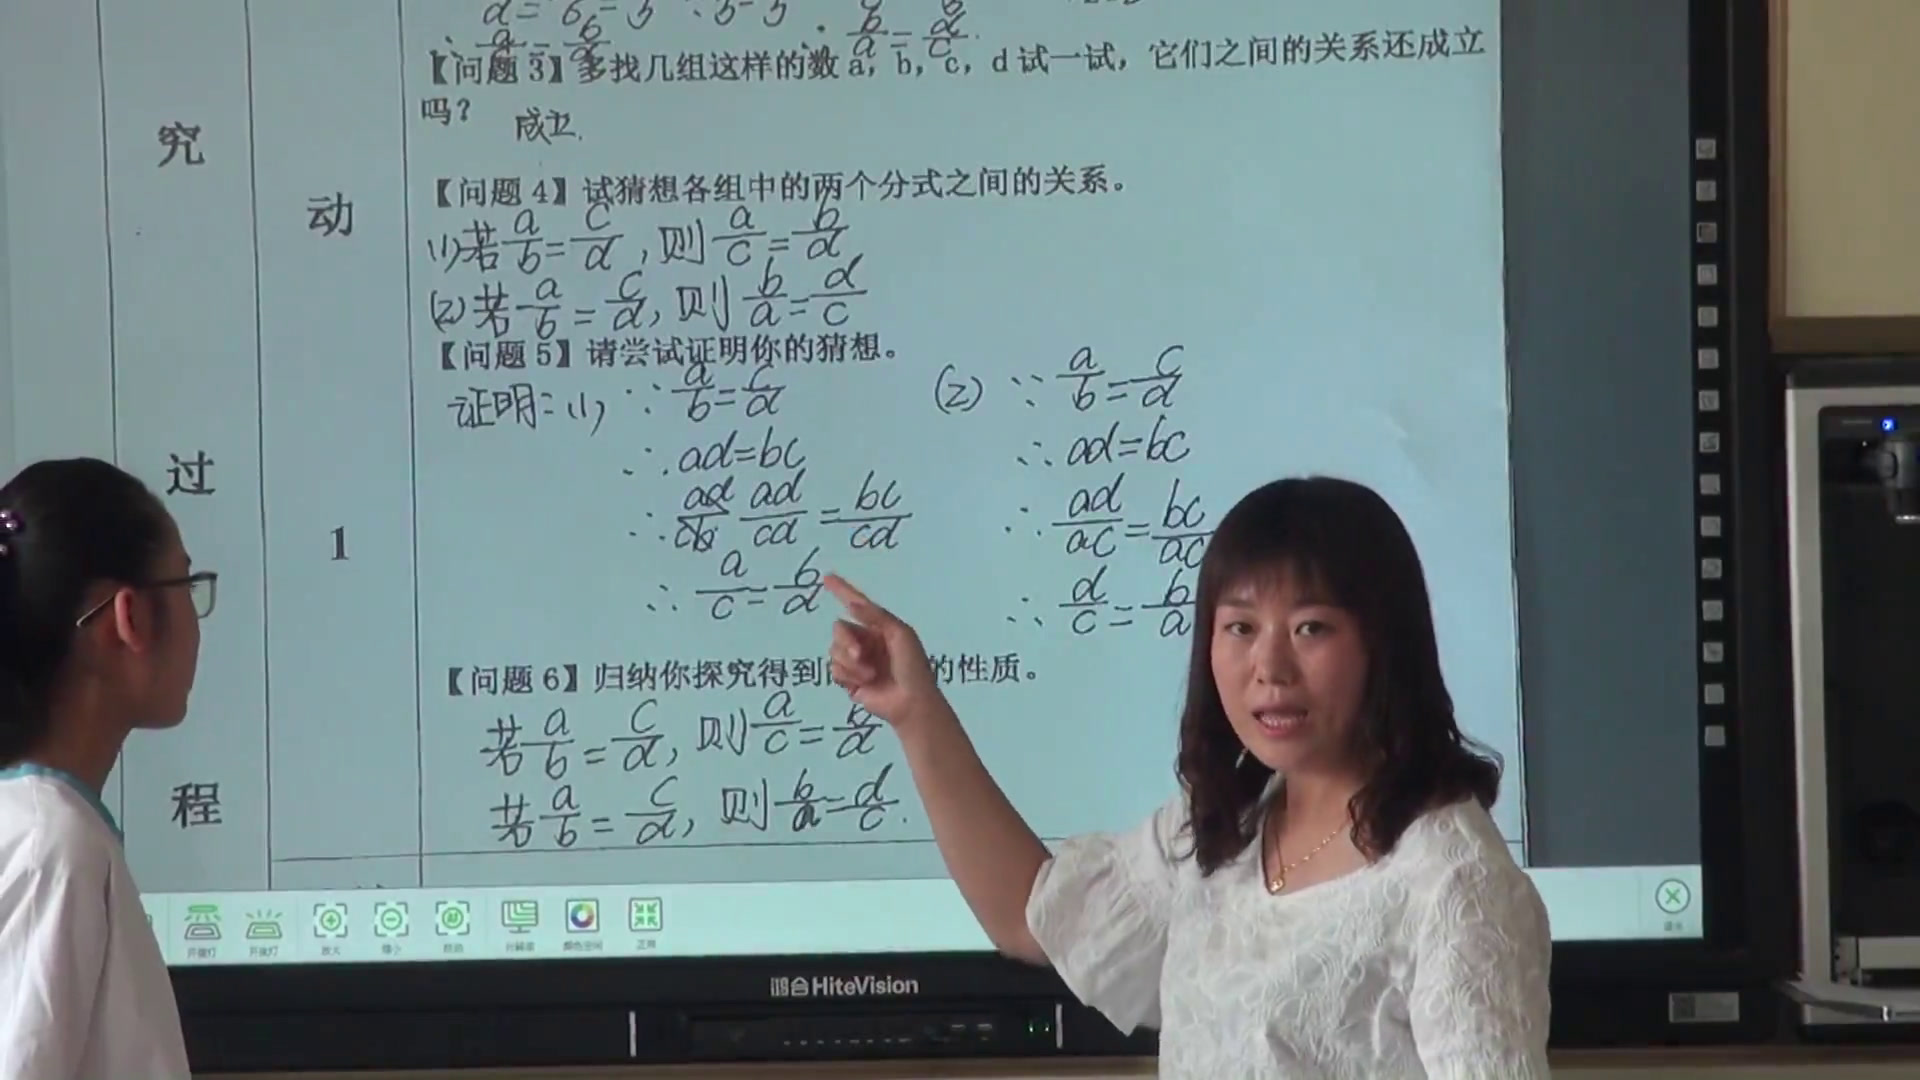 【问题 3】多找几组这样的数 a，b，c，d 试一试，它们之间的关系还成立
吗？ 成立.
究
【问题 4】试猜想各组中的两个分式之间的关系。
动
(1)若a/b=c/d,则a/c=b/d
(2)若a/b=c/d,则b/a=d/c
【问题 5】请尝试证明你的猜想。
证明:(1) ∵a/b=c/d
∴ad=bc
∴ad/cd=bc/cd
∴a/c=b/d
(2) ∵a/b=c/d
∴ad=bc
∴ad/ac=bc/ac
∴d/c=b/a
过
1
【问题 6】归纳你探究得到的性质。
若a/b=c/d,则a/c=b/d
若a/b=c/d,则b/a=d/c.
程
鸿合HiteVision